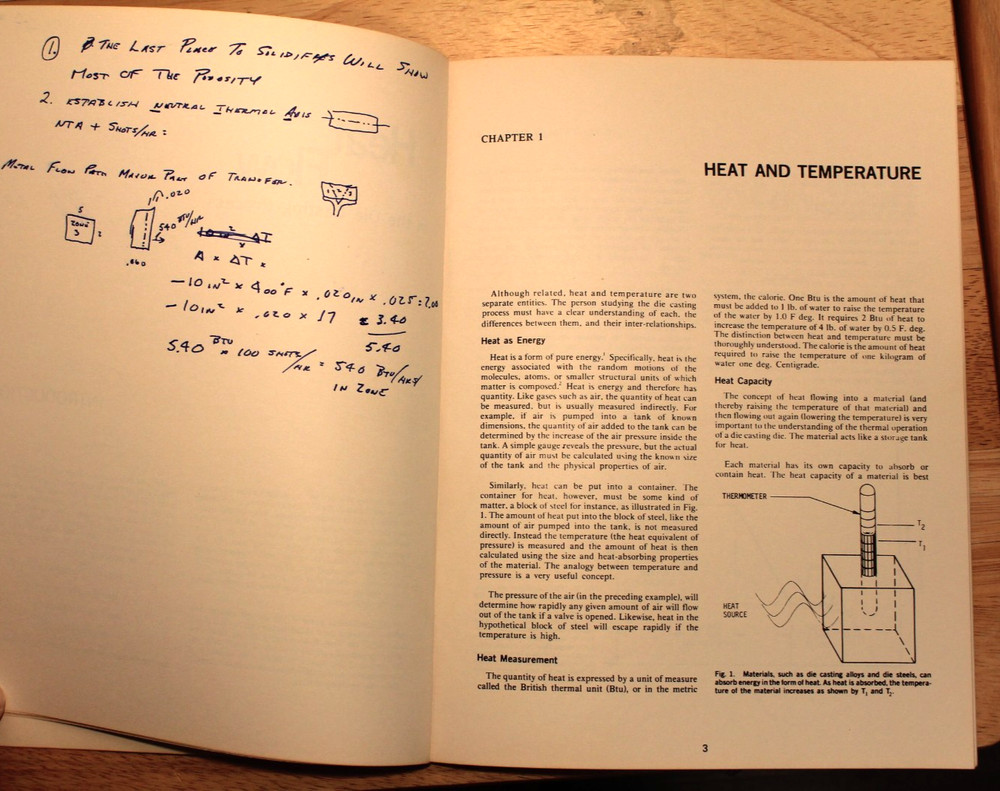 1. THE LAST PLACE TO SOLIDIFIES WILL SHOW
MOST OF THE POROSITY
2. ESTABLISH NEUTRAL THERMAL AXIS
NTA + SHOTS/HR:
METAL FLOW PATH MAJOR PART OF TRANSFER.
.020
5
ZONE
3
2
540 BTU/HR
.060
A × ΔT ×
— 10 IN² × 400°F × .020 IN × .025 = 2.00
— 10 IN² × .020 × 17 = 3.40
5.40
5.40 BTU × 100 SHOTS/HR = 540 BTU/HRS/
IN ZONE
CHAPTER 1
HEAT AND TEMPERATURE
Although related, heat and temperature are two
separate entities. The person studying the die casting
process must have a clear understanding of each, the
differences between them, and their inter-relationships.
Heat as Energy
Heat is a form of pure energy.¹ Specifically, heat is the
energy associated with the random motions of the
molecules, atoms, or smaller structural units of which
matter is composed.² Heat is energy and therefore has
quantity. Like gases such as air, the quantity of heat can
be measured, but is usually measured indirectly. For
example, if air is pumped into a tank of known
dimensions, the quantity of air added to the tank can be
determined by the increase of the air pressure inside the
tank. A simple gauge reveals the pressure, but the actual
quantity of air must be calculated using the known size
of the tank and the physical properties of air.
Similarly, heat can be put into a container. The
container for heat, however, must be some kind of
matter, a block of steel for instance, as illustrated in Fig.
1. The amount of heat put into the block of steel, like the
amount of air pumped into the tank, is not measured
directly. Instead the temperature (the heat equivalent of
pressure) is measured and the amount of heat is then
calculated using the size and heat-absorbing properties
of the material. The analogy between temperature and
pressure is a very useful concept.
The pressure of the air (in the preceding example), will
determine how rapidly any given amount of air will flow
out of the tank if a valve is opened. Likewise, heat in the
hypothetical block of steel will escape rapidly if the
temperature is high.
Heat Measurement
The quantity of heat is expressed by a unit of measure
called the British thermal unit (Btu), or in the metric
system, the calorie. One Btu is the amount of heat that
must be added to 1 lb. of water to raise the temperature
of the water by 1.0 F deg. It requires 2 Btu of heat to
increase the temperature of 4 lb. of water by 0.5 F. deg.
The distinction between heat and temperature must be
thoroughly understood. The calorie is the amount of heat
required to raise the temperature of one kilogram of
water one deg. Centigrade.
Heat Capacity
The concept of heat flowing into a material (and
thereby raising the temperature of that material) and
then flowing out again (lowering the temperature) is very
important to the understanding of the thermal operation
of a die casting die. The material acts like a storage tank
for heat.
Each material has its own capacity to absorb or
contain heat. The heat capacity of a material is best
THERMOMETER
T₂
T₁
HEAT
SOURCE
Fig. 1. Materials, such as die casting alloys and die steels, can
absorb energy in the form of heat. As heat is absorbed, the tempera-
ture of the material increases as shown by T₁ and T₂.
3